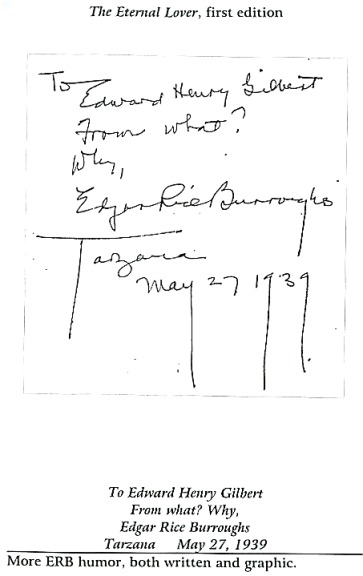 The Eternal Lover, first edition
To Edward Henry Gilbert
From what?
Why,
Edgar Rice Burroughs
Tarzana
May 27 1939
To Edward Henry Gilbert
From what? Why,
Edgar Rice Burroughs
Tarzana May 27, 1939
More ERB humor, both written and graphic.